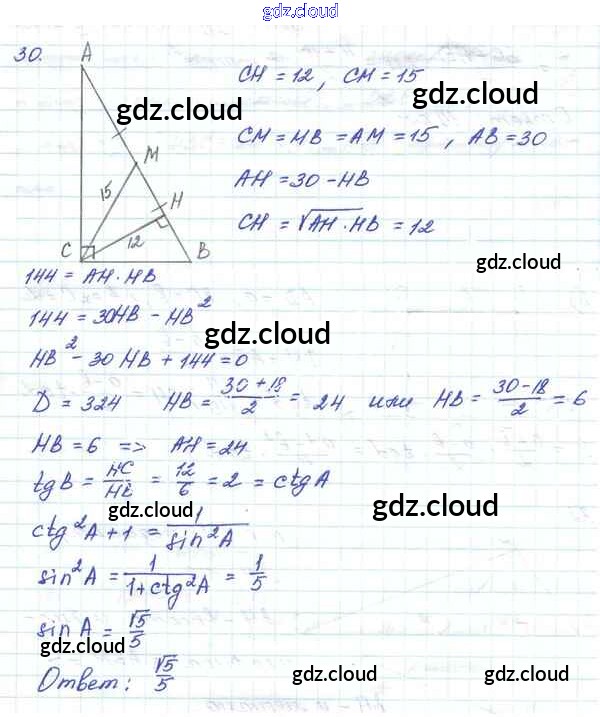 gdz.cloud
gdz.cloud
30.
A
M
H
C
B
15
12
CH = 12, CM = 15
gdz.cloud
gdz.cloud
CM = MB = AM = 15, AB = 30
AH = 30 - HB
CH = √AH · HB = 12
gdz.cloud
144 = AH · HB
144 = 30HB - HB²
gdz.cloud
HB² - 30 HB + 144 = 0
D = 324 HB = (30 + 18)/2 = 24 или HB = (30 - 18)/2 = 6
HB = 6 => AH = 24
tg B = HC/HB = 12/6 = 2 = ctg A
gdz.cloud
gdz.cloud
ctg²A + 1 = 1/sin²A
sin²A = 1/(1 + ctg²A) = 1/5
sin A = √5/5
gdz.cloud
gdz.cloud
gdz.cloud
Ответ: √5/5